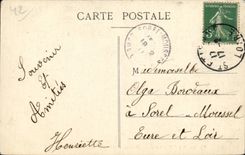 42
CARTE POSTALE
Souvenir
et
Amitiés
Henriette
Mademoiselle
Olga Bordeaux
à Sorel-Moussel
Eure et Loir